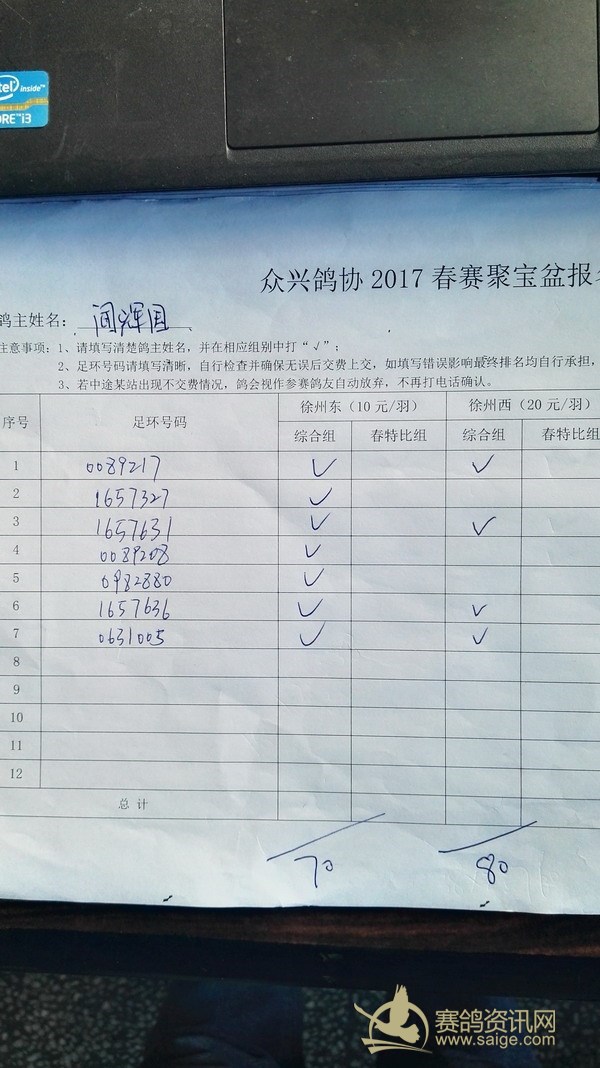 intel inside™
CORE™i3
众兴鸽协 2017 春赛聚宝盆报
鸽主姓名：闾辉国
注意事项：1、请填写清楚鸽主姓名，并在相应组别中打“√”；
2、足环号码请填写清晰，自行检查并确保无误后交费上交，如填写错误影响最终排名均自行承担，
3、若中途某站出现不交费情况，鸽会视作参赛鸽友自动放弃，不再打电话确认。
序号 足环号码 徐州东（10 元/羽） 徐州西（20 元/羽）
综合组 春特比组 综合组 春特比组
1 0089217 ✓ ✓
2 1657327 ✓
3 1657631 ✓ ✓
4 0089208 ✓
5 0982880 ✓
6 1657636 ✓ ✓
7 0631005 ✓ ✓
8
9
10
11
12
总 计
70 80
赛鸽资讯网
www.saige.com